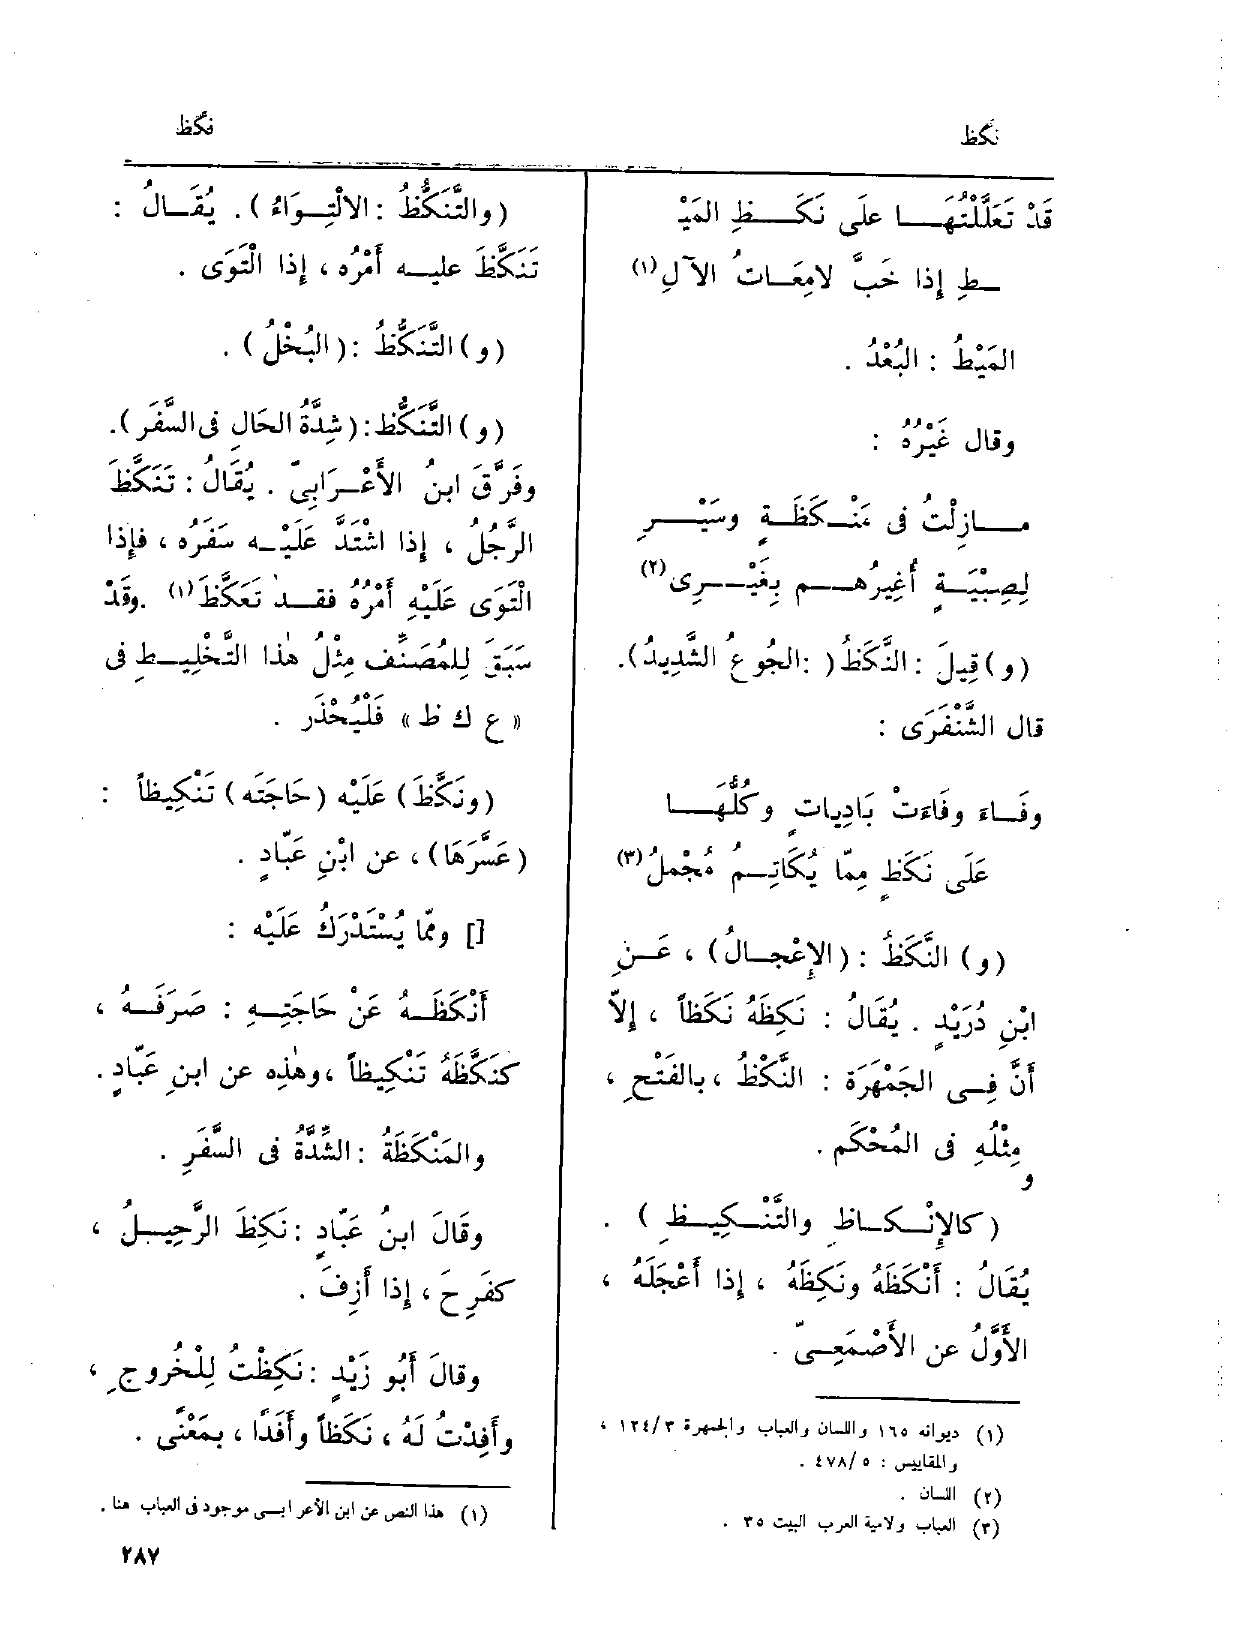 نكظ
قَدْ تَعَلَّلْتُهَــا عَلَى نَكَــظِ المَيْـ
ــطِ إِذا خَبَّ لامِعَاتُ الآلِ (١)
المَيْطُ : البُعْدُ .
وقال غَيْرُه :
مــازِلْتُ فى مَنْـكَظَةٍ وسَيْـرِ
لِصِبْيَـةٍ أَغِيرُهُـم بِغَيْـرِى (٢)
(و) قِيلَ : النَّكَظُ ( : الجُوعُ الشَّدِيدُ).
قال الشَّنْفَرَى :
وفَـاءَ وفَاءَتْ بَادِياتٍ وكُلُّهَـا
عَلَى نَكَظٍ مِمّا يُكَاتِـمُ مُجْمِلُ (٣)
(و) النَّكَظُ : (الإِعْجـالُ) ، عَـنِ
ابْنِ دُرَيْدٍ . يُقَالُ : نَكِظَهُ نَكَظاً ، إِلاّ
أَنَّ فِـى الجَمْهَرَة : النَّكْظُ ، بالفَتْحِ ،
و مِثْلُه فى المُحْكَم .
(كالإِنْـكـاظِ والتَّنْـكِيـظِ) .
يُقَالُ : أَنْكَظَهُ ونَكِظَهُ ، إِذا أَعْجَلَهُ ،
الأَوَّلُ عن الأَصْمَعِـىّ .
(١) ديوانه ١٦٥ واللسان والعباب والجمهرة ١٢٤/٣ ،
والمقاييس : ٤٧٨/٥ .
(٢) اللسان .
(٣) العباب ولامية العرب البيت ٣٥ .
نكظ
(والتَّنَكُّظُ : الالْتِـوَاءُ) . يُقَـالُ :
تَنَكَّظَ عليـه أَمْرُه ، إِذا الْتَوَى .
(و) التَّنَكُّظُ : (البُخْلُ) .
(و) التَّنَكُّظ : (شِدَّةُ الحَالِ فى السَّفَرِ).
وفَرَّقَ ابنُ الأَعْـرَابِىّ . يُقَالُ : تَنَكَّظَ
الرَّجُلُ ، إِذا اشْتَدَّ عَلَيْـه سَفَرُه ، فإِذا
الْتَوَى عَلَيْهِ أَمْرُهُ فقـد تَعَكَّظَ (١) . وقَدْ
سَبَقَ لِلمُصَنِّف مِثْلُ هٰذا التَّخْلِيـطِ فى
« ع ك ظ » فَلْيُحْذَر .
(ونَكَّظَ) عَلَيْه (حَاجَتَه) تَنْكِيظاً :
(عَسَّرَهَا) ، عن ابْنِ عَبّادٍ .
[] وممّا يُسْتَدْرَكُ عَلَيْه :
أَنْكَظَـهُ عَنْ حَاجَتِـهِ : صَرَفَـهُ ،
كنَكَّظَهُ تَنْكِيظاً ، وهٰذِه عن ابنِ عَبّادٍ .
والمَنْكَظَةُ : الشِّدَّةُ فى السَّفَرِ .
وقَالَ ابنُ عَبّادٍ : نَكِظَ الرَّحِيـلُ ،
كفَرِحَ ، إِذا أَزِفَ .
وقالَ أَبُو زَيْدٍ : نَكِظْتُ لِلْخُروجِ ،
وأَفِدْتُ لَهُ ، نَكَظاً وأَفَدًا ، بمَعْنًى .
(١) هذا النص عن ابن الأعرابـى موجود فى العباب هنا .
٢٨٧